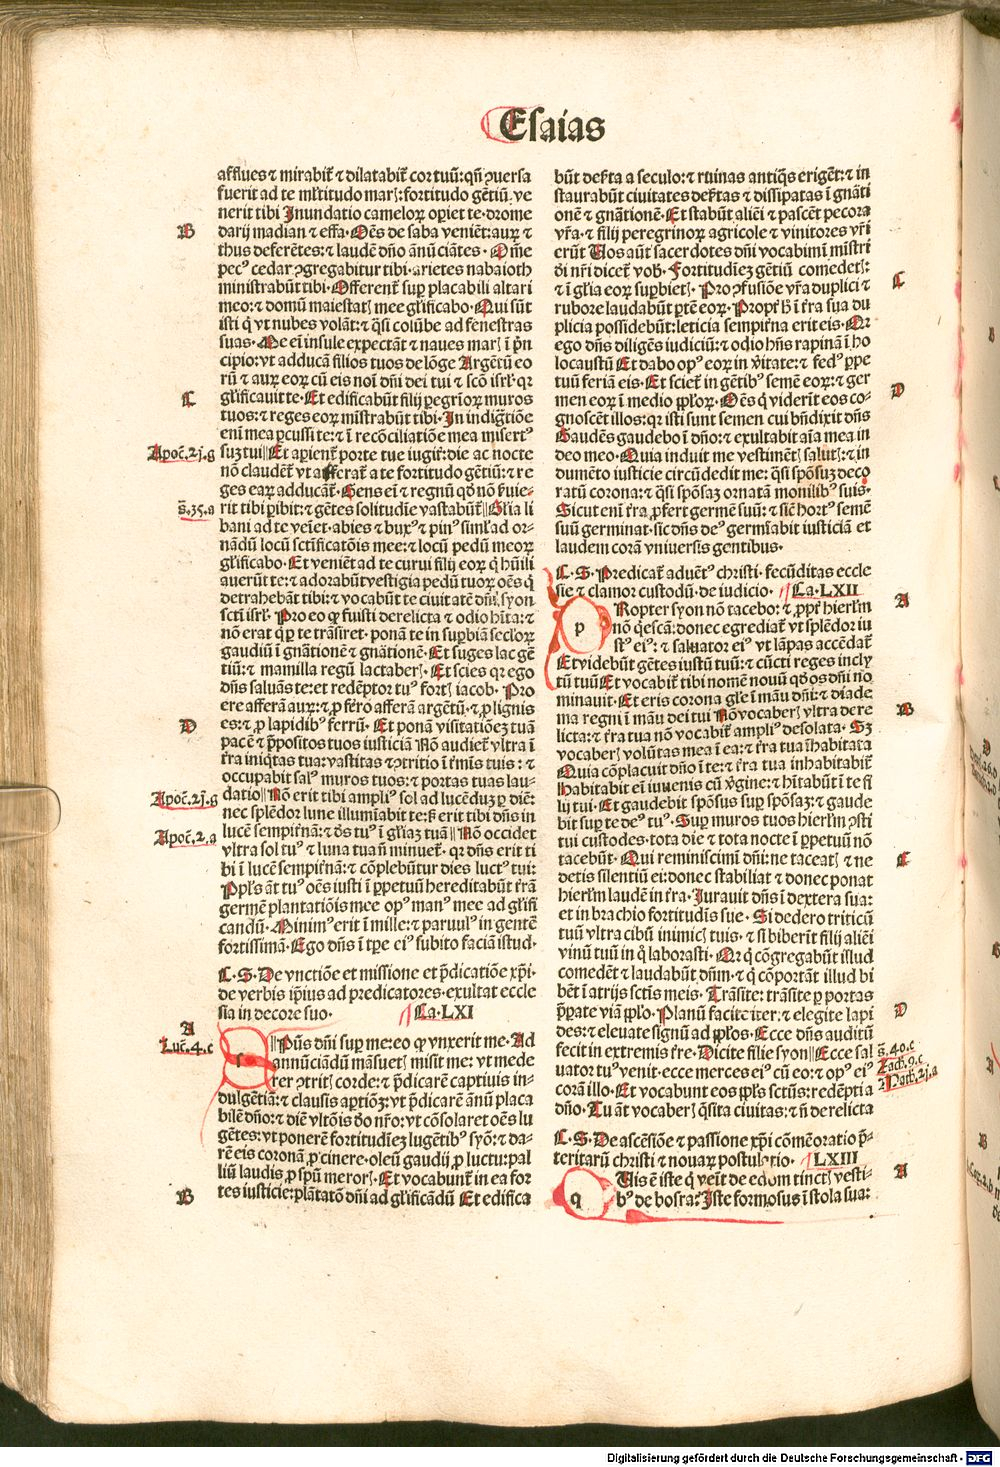 Esaias
afflues ⁊ mirabiť ⁊ dilatabiť cor tuũ: qñ ꝯuersa
fuerit ad te mľtitudo marꝭ: fortitudo gẽtiũ ve
nerit tibi Inundatio cameloꝝ oꝑiet te. drome
B
darij madian ⁊ effa. Oẽs de saba veniẽt: auꝝ ⁊
thus deferẽtes: ⁊ laudẽ dño ãnũciãtes. Om̃e
pecꝰ cedar ꝯgregabitur tibi. arietes nabaioth
ministrabũt tibi. Offerent̃ suꝑ placabili altari
meo: ⁊ domũ maiestatꝭ mee gľificabo. Qui sũt
isti ꝗ vt nubes volãt: ⁊ q̃si colũbe ad fenestras
suas. Me em̃ insule expectãt ⁊ naues marꝭ ĩ pñ
cipio: vt adducã filios tuos de lõge Argẽtũ eo
rũ ⁊ auꝝ eoꝝ cũ eis noĩ dñi dei tui ⁊ scõ isrľ. qꝛ
C
gľificauit te. Et edificabũt filij ꝑegrioꝝ muros
tuos: ⁊ reges eoꝝ mĩstrabũt tibi. In indigtiõe
em̃ mea ꝑcussi te: ⁊ ĩ recõciliatiõe mea misertꝰ
Apoc̃. 2j. g
suꝫ tui Et aꝑient̃ porte tue iugiť: die ac nocte
nõ claudẽt̃ vt afferat̃ a te fortitudo gẽtiũ: ⁊ re
ges eaꝝ adducãt̃. Gens em̃ ⁊ regnũ qđ nõ ẜuie-
s̃. 35. a
rit tibi ꝑibit: ⁊ gẽtes solitudĩe vastabũt̃ Gľia li
bani ad te veĩet. abies ⁊ buxꝰ ⁊ pinꝰ simľ ad or-
nãdũ locũ sct̃ificatõis mee: ⁊ locũ pedũ meoꝝ
gľificabo. Et veniẽt ad te curui filij eoꝝ ꝗ hũili
auerũt te: ⁊ adorabũt vestigia pedũ tuoꝝ oẽs ꝗ
detrahebãt tibi: ⁊ vocabũt te ciuitatẽ dñi syon
sct̃i isrľ. Pro eo ꝙ fuisti derelicta ⁊ odio hĩta: ⁊
nõ erat ꝗ ꝑ te trãsiret. ponã te in suꝑbiã secľoꝝ
gaudiũ ĩ gnãtionẽ ⁊ gnãtionẽ. Et suges lac gẽ
tiũ: ⁊ mamilla regũ lactaberꝭ. Et scies qꝛ ego
dñs saluãs te: et redẽptor tuꝰ fortꝭ iacob. Pro
ere afferã auꝝ: ⁊ ꝓ ferro afferã argẽtũ: ⁊ ꝓ lignis
D
es: ⁊ ꝓ lapidibꝰ ferrũ. Et ponã visitatiõeꝫ tuã
pacẽ ⁊ p̃positos tuos iusticiã Nõ audiet̃ vltra ĩ
t̃ra iniq̃tas tua: vastitas ⁊ ꝯtritio ĩ t̃mĩs tuis: ⁊
occupabit salꝰ muros tuos: ⁊ portas tuas lau-
Apoc̃. 2j. g
datio Nõ erit tibi ampliꝰ sol ad lucẽduꝫ ꝑ diẽ:
nec splẽdor lune illumĩabit te: ſꝫ erit tibi dñs in
Apoc̃. 2. a
lucẽ sempit̃nã: ⁊ dš tuꝰ ĩ gľiaꝫ tuã Nõ occidet
vltra sol tuꝰ ⁊ luna tua ñ minuet̃. qꝛ dñs erit ti
bi ĩ lucẽ sempit̃nã: ⁊ cõplebũtur dies luctꝰ tui:
Ppľs ãt tuꝰ oẽs iusti ĩ ꝑpetuũ hereditabũt t̃rã
germẽ plantatiõis mee opꝰ manꝰ mee ad gľifi
candũ. Minimꝰ erit ĩ mille: ⁊ paruulꝰ in gentẽ
fortissimã. Ego dñs ĩ tꝑe eiꝰ subito faciã istud.
C. S. De vnctiõe et missione et p̃dicatiõe xp̃i.
de verbis ip̃ius ad predicatores. exultat eccle
sia in decore suo. Ca. LXI
A
Luc̃. 4. c
s
Pũs dñi suꝑ me: eo ꝙ vnxerit me. Ad
annũciãdũ mãsuetꝭ misit me: vt mede
rer ꝯtritꝭ corde: ⁊ p̃dicarẽ captiuis in-
dulgẽtiã: ⁊ clausis aꝑtiõꝫ: vt p̃dicarẽ ãnũ placa
bilẽ dño: ⁊ diẽ vltõis do nr̃o: vt cõsolaret oẽs lu
gẽtes: vt ponerẽ fortitudĩeꝫ lugẽtibꝰ syõ: ⁊ da-
rẽ eis coronã ꝓ cinere. oleũ gaudij ꝓ luctu: pal
liũ laudis ꝓ spũ merorꝭ. Et vocabunt̃ in ea for
B
tes iusticie: plãtatõ dñi ad gľificãdũ Et edifica
bũt deẜta a seculo: ⁊ ruinas antiq̃s erigẽt: ⁊ in
staurabũt ciuitates deẜtas ⁊ dissipatas ĩ gnãti
onẽ ⁊ gnãtionẽ. Et stabũt aliẽi ⁊ pascẽt pecora
vr̃a. ⁊ filij peregrinoꝝ agricole ⁊ vinitores vr̃i
erũt Uos aũt sacerdotes dñi vocabimĩ mĩstri
di nr̃i dicet̃ vob̃. Fortitudĩeꝫ gẽtiũ comedetꝭ:
C
⁊ ĩ gľia eoꝝ suꝑbietꝭ. Pro ꝯfusiõe vr̃a duplici ⁊
rubore laudabũt ꝑtẽ eoꝝ. Propt̃ h̃ ĩ t̃ra sua du
plicia possidebũt: leticia sempit̃na erit eis. Qꝛ
ego dñs diligẽs iudiciũ: ⁊ odio hñs rapinã ĩ ho
locaustũ Et dabo opꝰ eoꝝ in ṽitate: ⁊ fedꝰ ꝑpe
tuũ feriã eis. Et sciet̃ in gẽtibꝰ semẽ eoꝝ: ⁊ ger
D
men eoꝝ ĩ medio ppľoꝝ. Oẽs ꝗ viderĩt eos co-
gnoscẽt illos: qꝛ isti sunt semen cui bñdixit dñs
Gaudẽs gaudebo ĩ dño: ⁊ exultabit aĩa mea in
deo meo. Quia induit me vestimẽtꝭ salutꝭ: ⁊ in
dumẽto iusticie circũdedit me: q̃si spõsuꝫ deco
ratũ corona: ⁊ q̃si spõsaꝫ ornatã monilibꝰ suis.
Sicut em̃ t̃ra ꝓfert germẽ suũ: ⁊ sic̃ hortꝰ semẽ
suũ germinat. sic dñs deꝰ germĩabit iusticiã et
laudem corã vniuersis gentibus.
C. S. Predicat̃ aduẽtꝰ christi. fecũditas eccle
sie ⁊ clamor custodũ. de iudicio. Ca. LXII
A
p
Ropter syon nõ tacebo: ⁊ ꝓpt̃ hierľm
nõ ꝗescã: donec egrediat̃ vt splẽdor iu
stꝰ eiꝰ: ⁊ saluator eiꝰ vt lãpas accẽdat̃
Et videbũt gẽtes iustũ tuũ: ⁊ cũcti reges incly
tũ tuũ Et vocabit̃ tibi nomẽ nouũ qđ os dñi no
minauit. Et eris corona gľe ĩ mãu dñi: ⁊ diade
B
ma regni ĩ mãu dei tui Nõ vocaberꝭ vltra dere
licta: ⁊ t̃ra tua nõ vocabit̃ ampliꝰ desolata. Sꝫ
vocaberꝭ volũtas mea ĩ ea: ⁊ t̃ra tua ĩhabitata
Quia cõplacuit dño ĩ te: ⁊ t̃ra tua inhabitabit̃
Habitabit em̃ iuuenis cũ ṽgine: ⁊ hĩtabũt ĩ te fi
lij tui. Et gaudebit spõsus suꝑ spõsaꝫ: ⁊ gaude
bit suꝑ te deꝰ tuꝰ. Suꝑ muros tuos hierľm ꝯsti
tui custodes. tota die ⁊ tota nocte ĩ ꝑpetuũ nõ
C
tacebũt. Qui reminiscimĩ dñi: ne taceatꝭ ⁊ ne
detis silentiũ ei: donec stabiliat ⁊ donec ponat
hierľm laudẽ in t̃ra. Iurauit dñs ĩ dextera sua:
et in brachio fortitudĩs sue. Si dedero triticũ
tuũ vltra cibũ inimicꝭ tuis. ⁊ si biberĩt filij aliẽi
vinũ tuũ in q̃ laborasti. Qꝛ ꝗ cõgregabũt illud
comedẽt ⁊ laudabũt dñm. ⁊ ꝗ cõportãt illud bi
bẽt ĩ atrijs sct̃is meis. Trãsite: trãsite ꝑ portas
D
p̃parate viã ppľo. Planũ facite iter: ⁊ elegite lapi
des: ⁊ eleuate signũ ad ppľos. Ecce dñs auditũ
s̃. 40. c
fecit in extremis t̃re. Dicite filie syon Ecce sal
Zach. 9. c
uator tuꝰ venit. ecce merces eiꝰ cũ eo: ⁊ opꝰ eiꝰ
Math. 2j. a
corã illo. Et vocabunt eos ppľs sct̃us: redẽpti a
dño. Tu ãt vocaberꝭ q̃sita ciuitas: ⁊ ñ derelicta
C. S. De ascẽsiõe ⁊ passione xp̃i cõmẽoratio p̃-
teritarũ christi ⁊ nouaꝝ postulatio. LXIII
A
q
Uis ẽ iste ꝗ veĩt de edom tinctꝭ vesti-
bꝰ de bosra? Iste formosus ĩ stola sua:
Digitalisierung gefördert durch die Deutsche Forschungsgemeinschaft - DFG